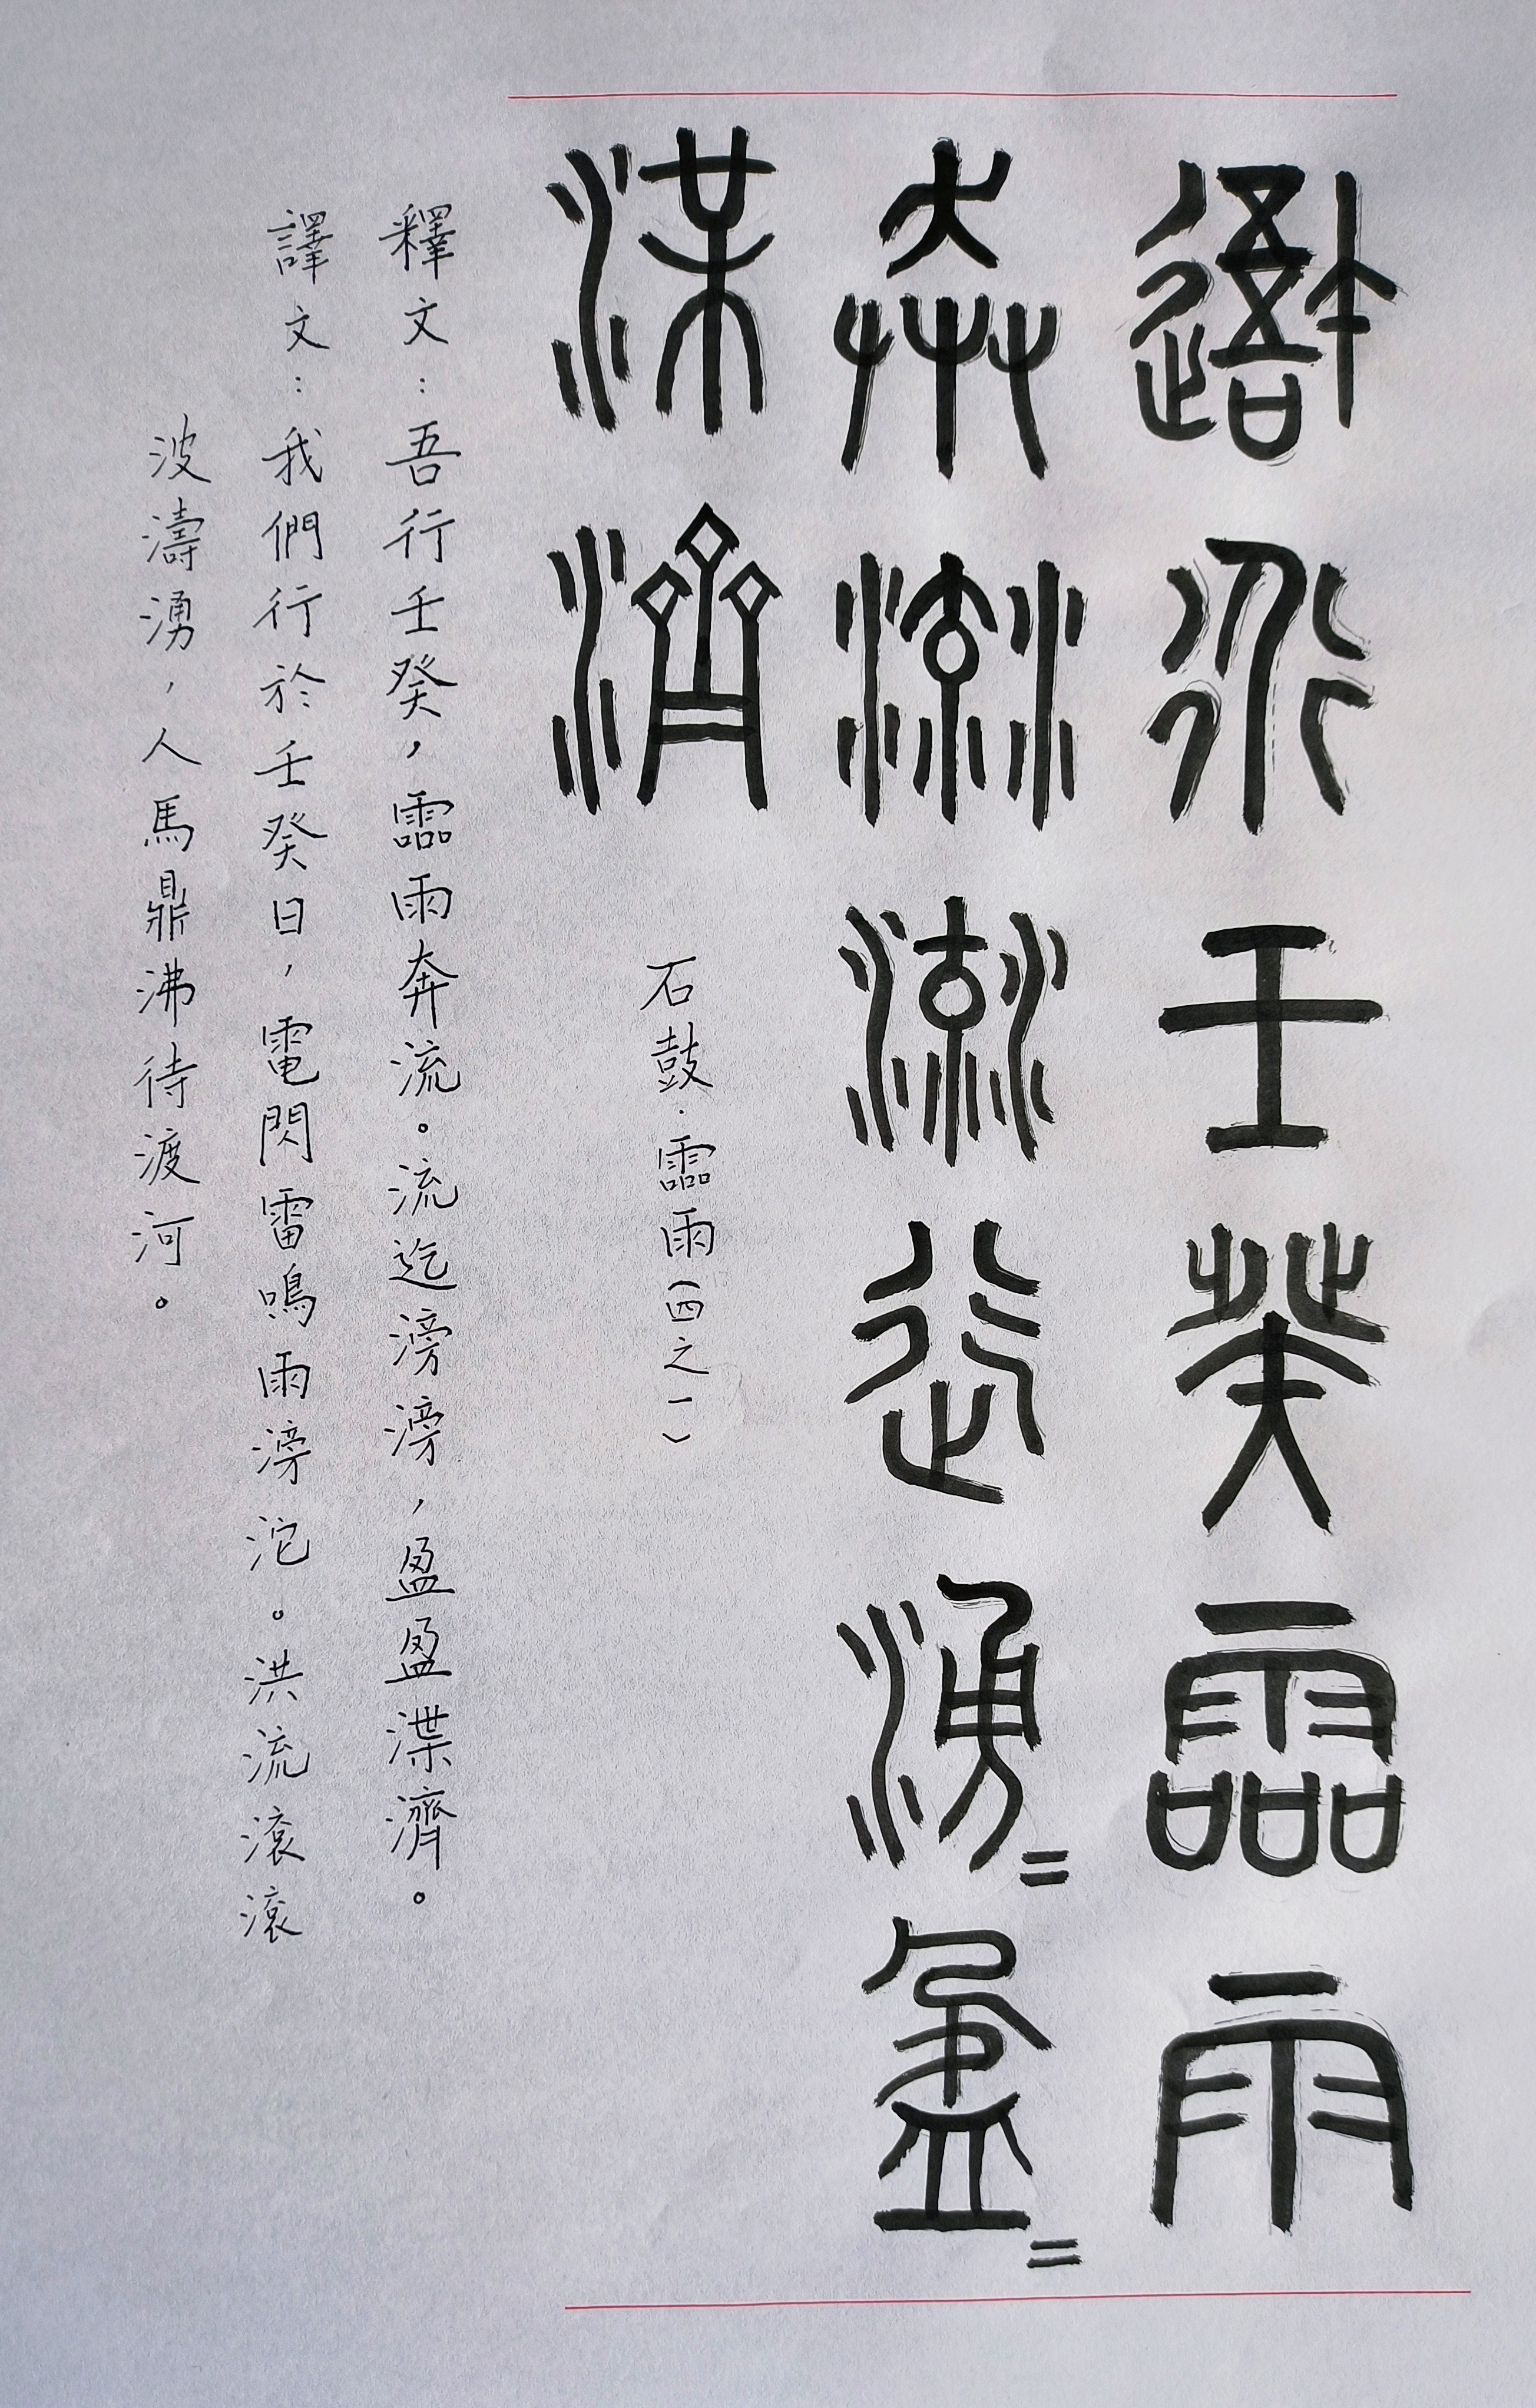 吾行壬癸霝雨
奔流流迄滂=盈=
渫濟
石鼓·霝雨(四之一)
釋文:吾行壬癸,霝雨奔流。流迄滂滂,盈盈渫濟。
譯文:我們行於壬癸日,電閃雷鳴雨滂沱。洪流滾滾
波濤湧,人馬鼎沸待渡河。